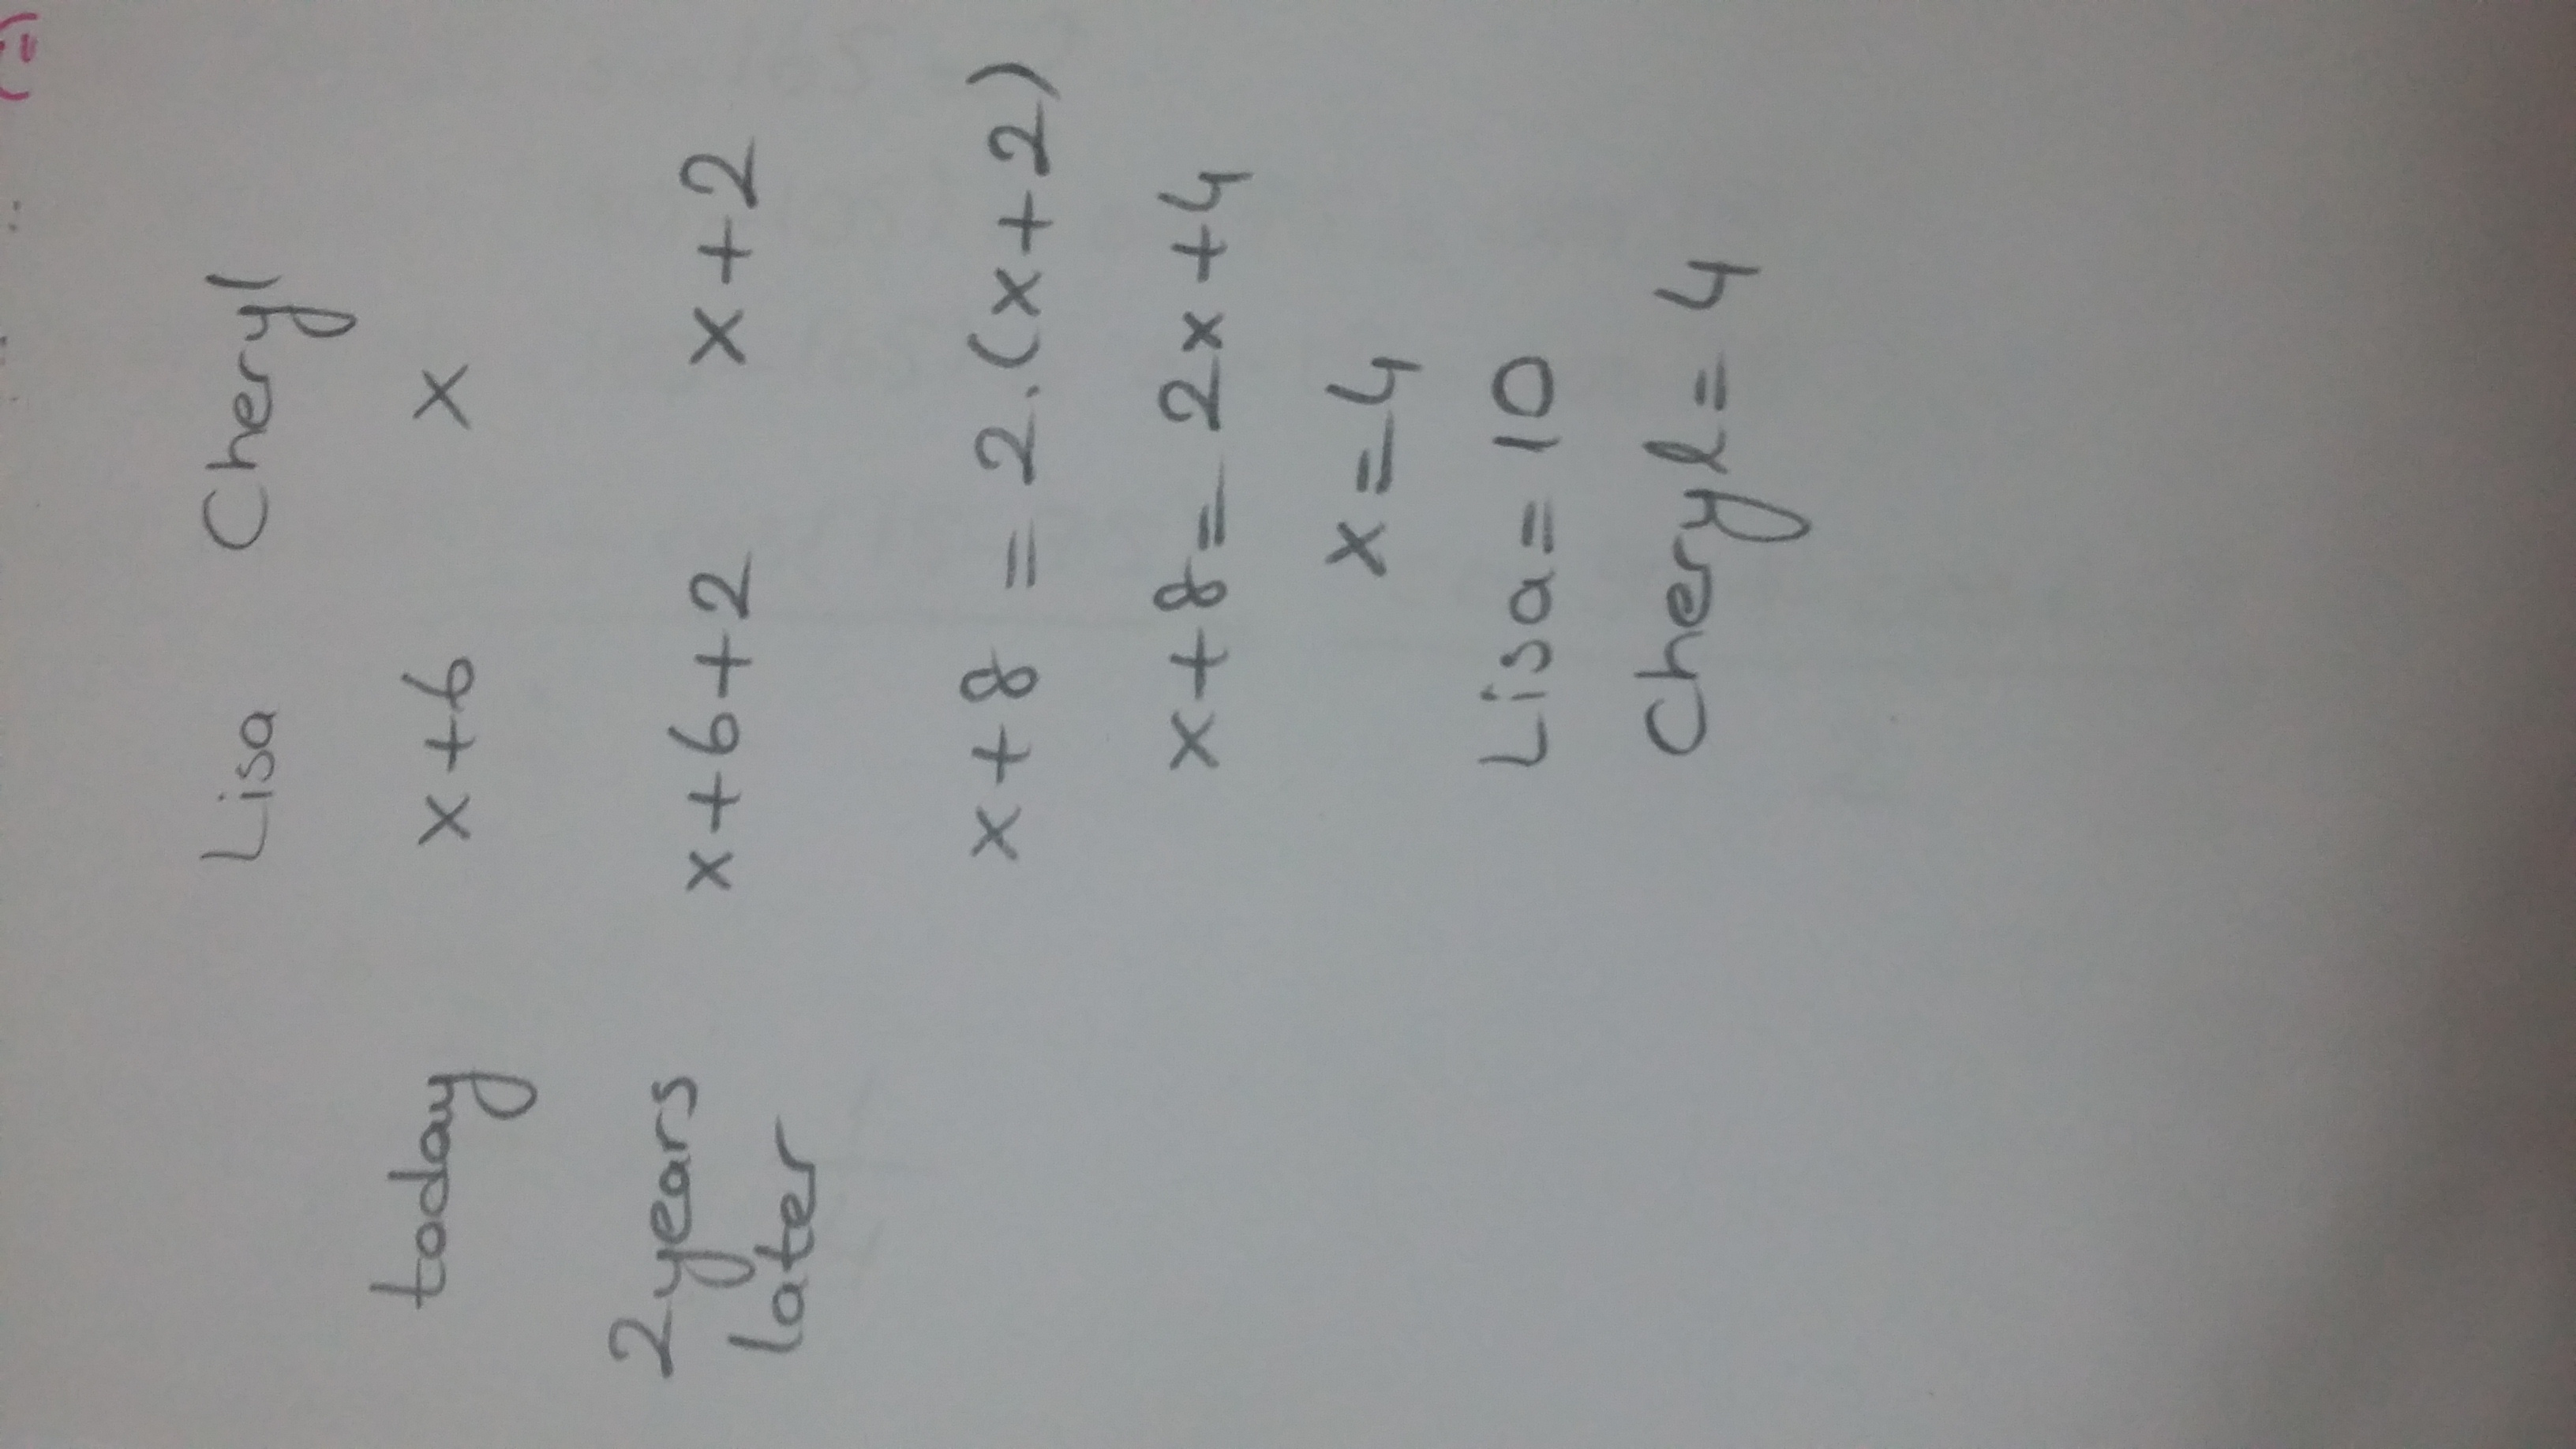 Lisa Cheryl
today x+6 x
2 years later x+6+2 x+2
x+8 = 2.(x+2)
x+8 = 2x+4
x=4
Lisa= 10
Cheryl= 4